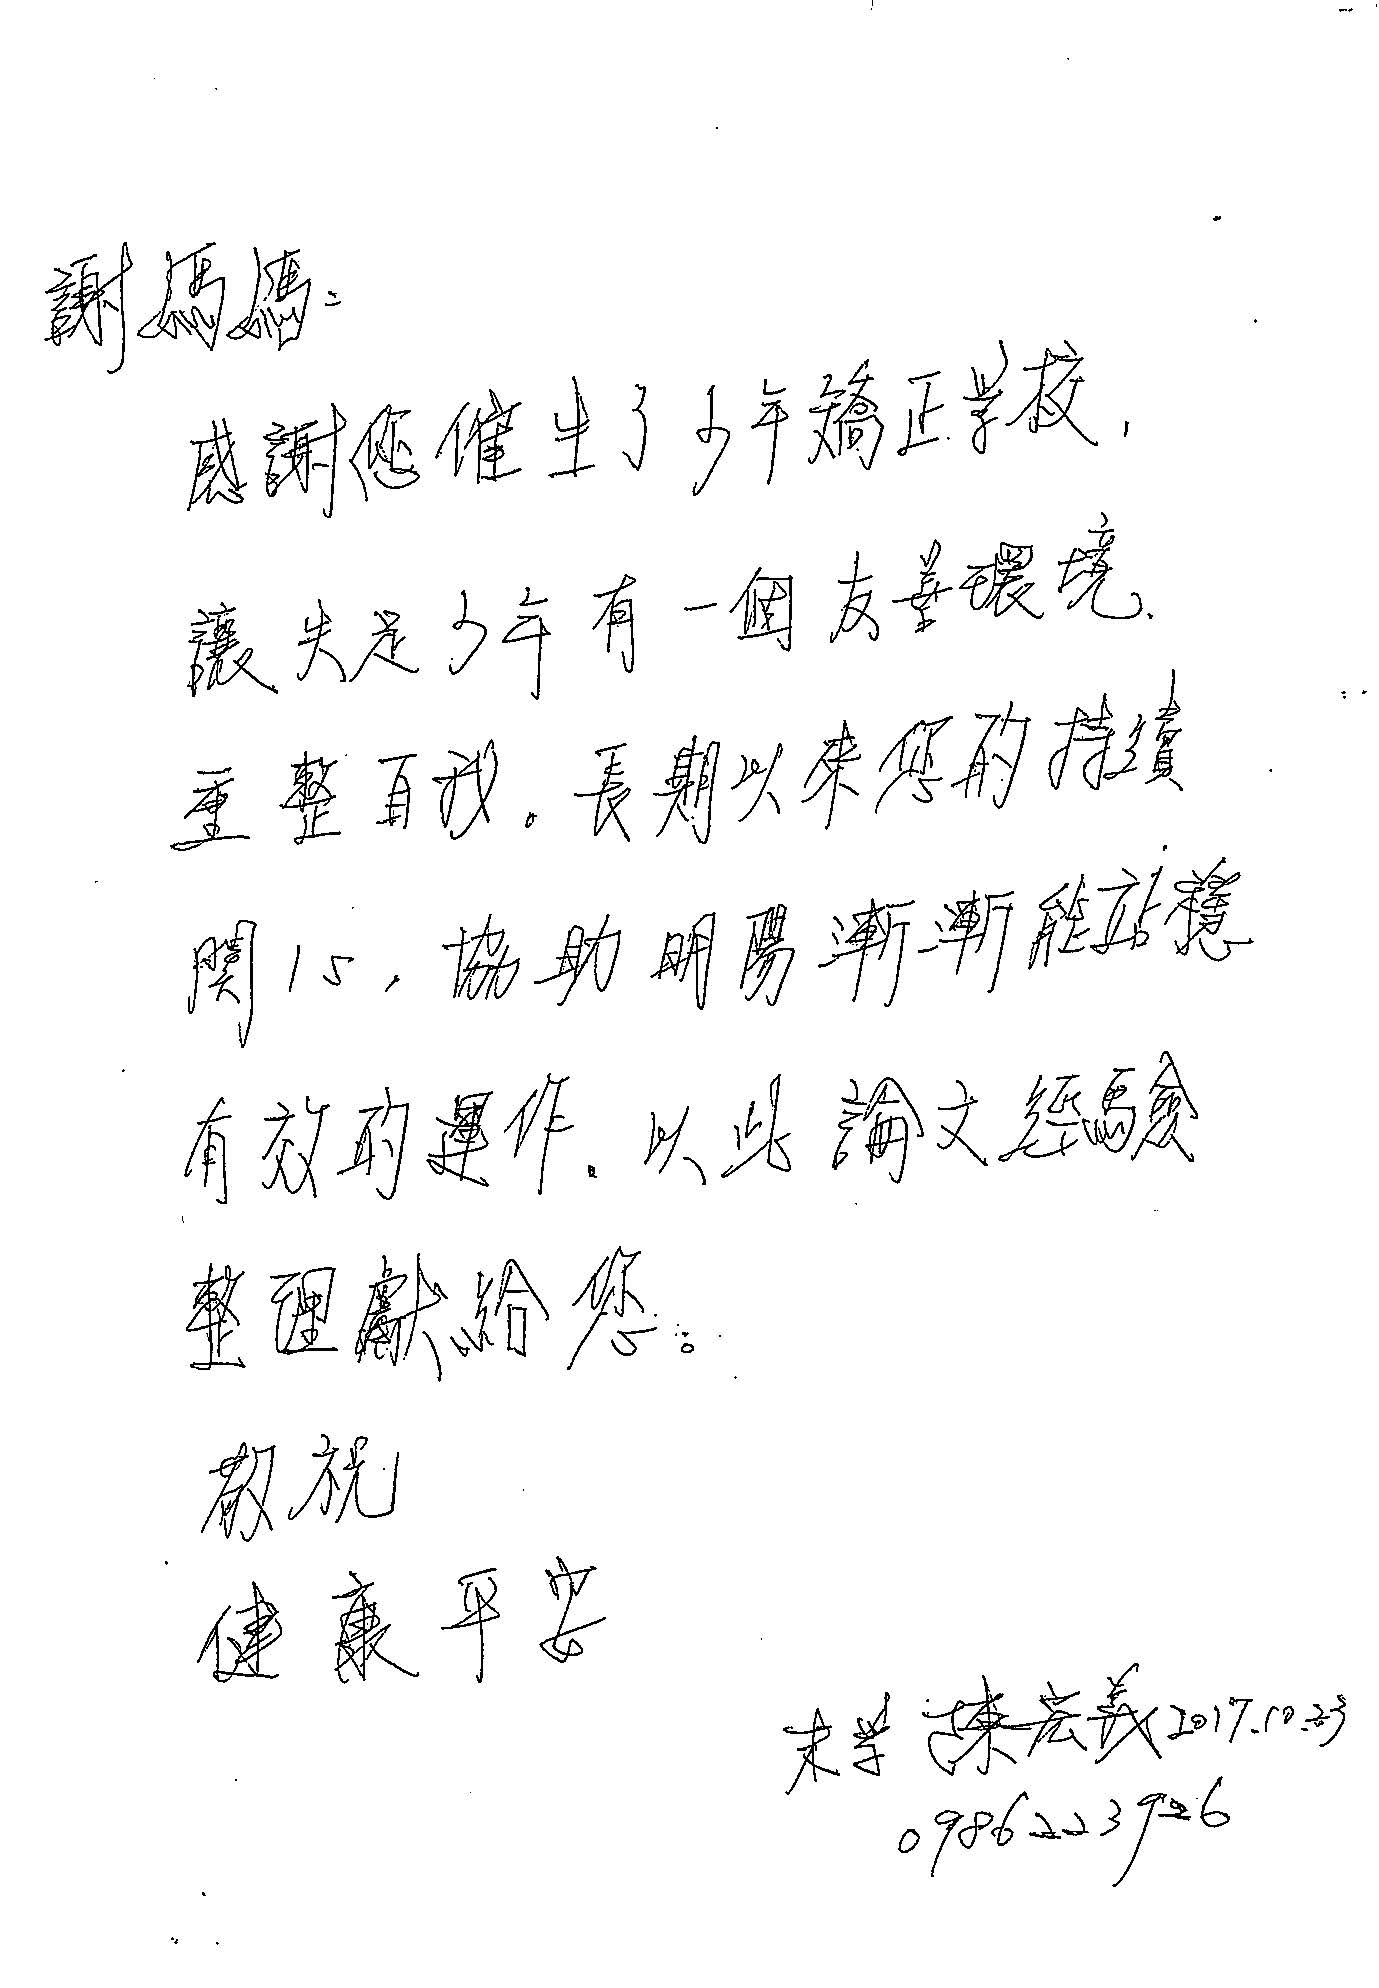 謝媽媽:
感謝您催生了少年矯正学校,
讓失足少年有一個友善環境.
重整自我。長期以來您的持續
関心,協助明陽漸漸能站穩
有效的運作.以此論文經驗
整理獻給您。
敬祝
健康平安
末学 陳宏義 2017.10.23
0986223926